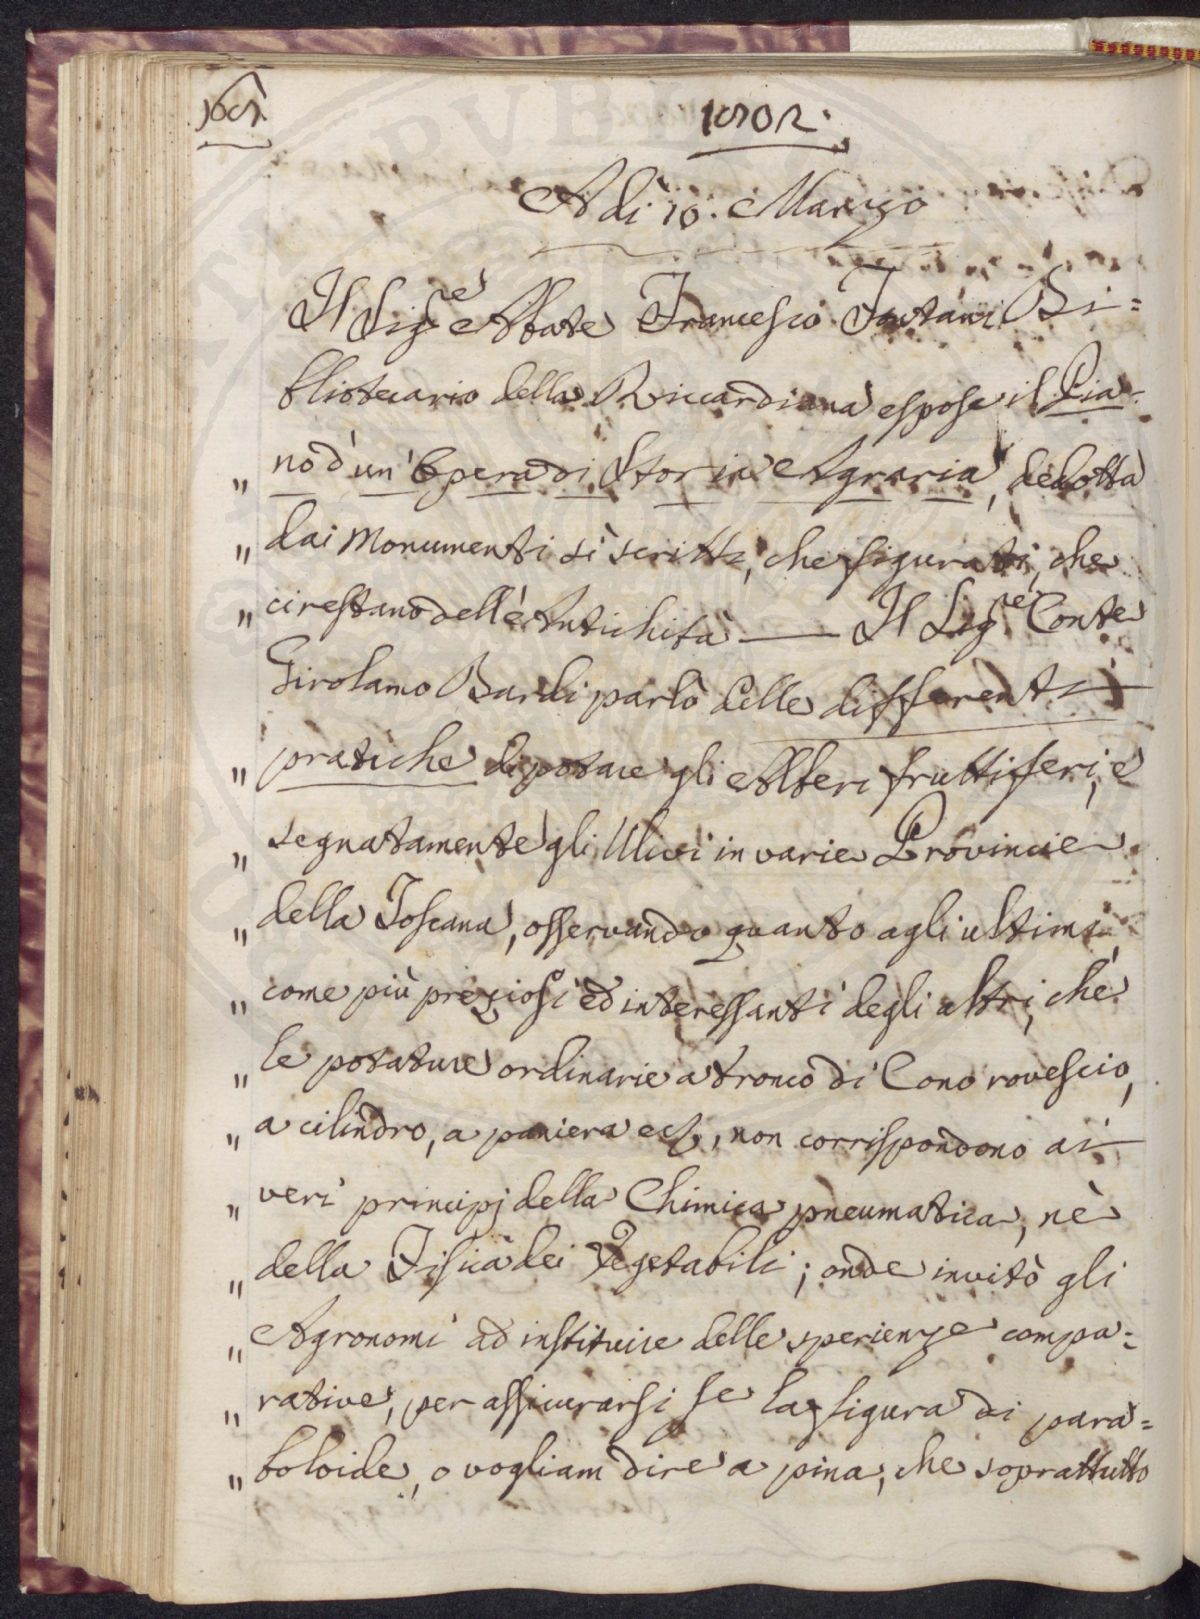 1802.
Adì 10. Marzo
Il Sig.re Abate Francesco Fontani Bi=
bliotecario della Riccardiana espose il Pia-
„ no d'un'Opera di Storia Agraria, dedotta
„ dai Monumenti sì scritti, che figurati, che
„ ci restano dell'Antichità — Il Sig.re Conte
Girolamo Bardi parlò delle differenti
„ pratiche di potare gli Alberi fruttiferi, e
„ segnatamente gli Ulivi in varie Provincie
„ della Toscana, osservando quanto agli ultimi,
„ come più preziosi ed interessanti degli altri, che
„ le potature ordinarie a tronco di Cono rovescio,
„ a cilindro, a paniera ec., non corrispondono ai
„ veri principj della Chimica pneumatica, nè
„ della Fisica dei Vegetabili; onde invitò gli
„ Agronomi ad instituire delle sperienze compa=
„ rative, per assicurarsi se la figura di para=
„ boloide, o vogliam dire a pina, che soprattutto